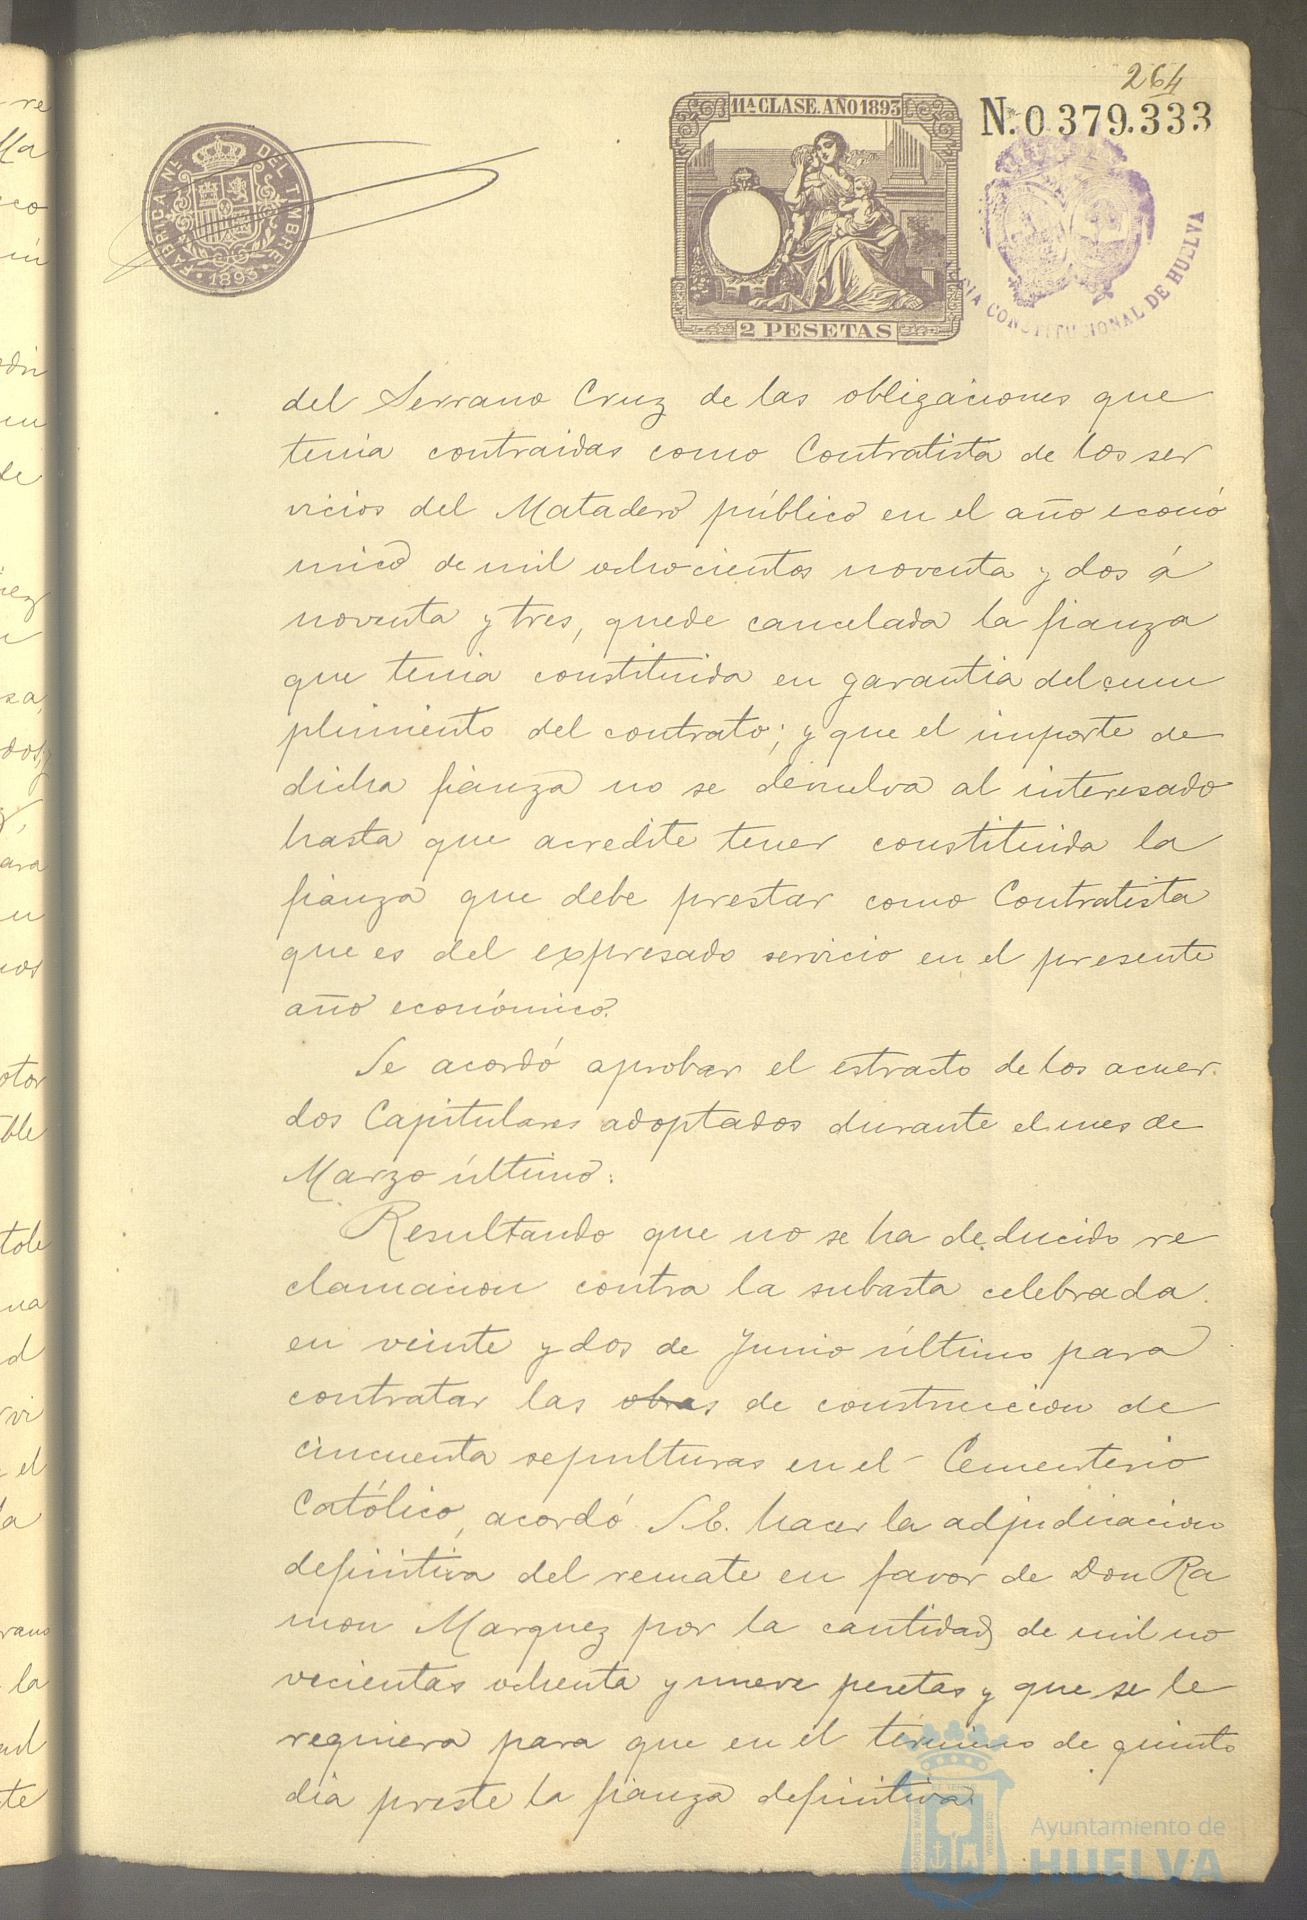 264
11ª CLASE. AÑO 1893
Nº. 0.379.333
FÁBRICA Nˡ DEL TIMBRE
1893
2 PESETAS
CONSTITUCIONAL DE HUELVA
del Serrano Cruz de las obligaciones que
tenia contraidas como Contratista de los ser
vicios del Matadero público en el año econó
mico de mil ochocientos noventa y dos á
noventa y tres, quede cancelada la fianza
que tenia constituida en garantia del cum
plimiento del contrato; y que el importe de
dicha fianza no se devuelva al interesado
hasta que acredite tener constituida la
fianza que debe prestar como Contratista
que es del expresado servicio en el presente
año económico.
Se acordó aprobar el estracto de los acuer
dos Capitulares adoptados durante el mes de
Marzo último.
Resultando que no se ha deducido re
clamacion contra la subasta celebrada
en veinte y dos de Junio último para
contratar las obras de construccion de
cincuenta sepulturas en el Cementerio
Católico, acordó S.E. hacer la adjudicacion
definitiva del remate en favor de Don Ra
mon Marquez por la cantidad de mil no
vecientas ochenta y nueve pesetas y que se le
requiera para que en el término de quinto
dia preste la fianza definitiva.
Ayuntamiento de
HUELVA